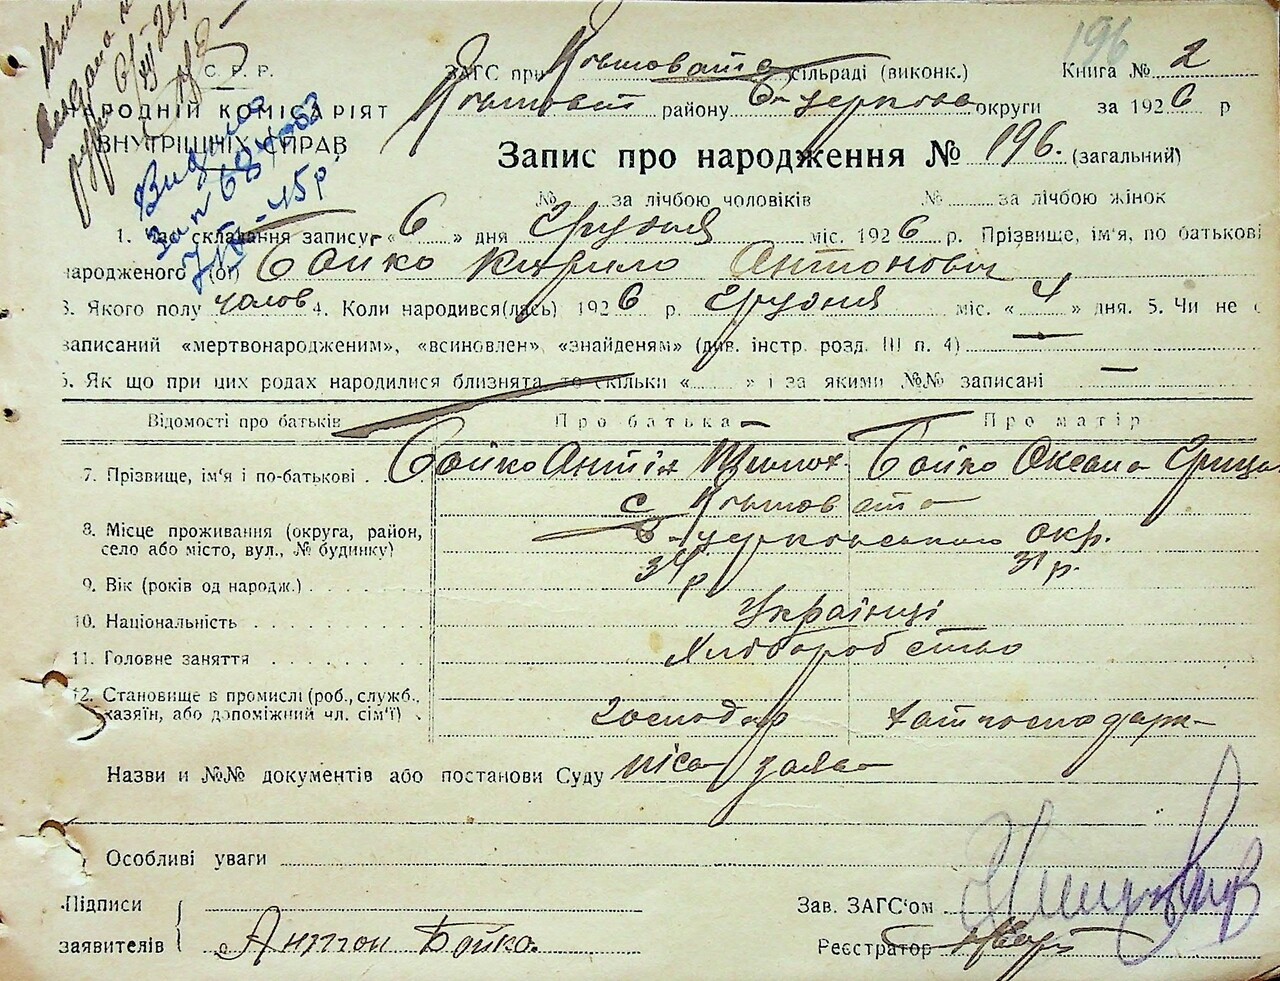 196
С. Р. Р.
НАРОДНІЙ КОМІСАРІЯТ
ВНУТРІШНІХ СПРАВ
ЗАГС при Кошовата сільраді (виконк.) Книга № 2
району Б-церков округи за 1926 р
Запис про народження № 196. (загальний)
№ за лічбою чоловіків № за лічбою жінок
1. Час складання запису «6» дня Грудня міс. 1926 р. Прізвище, ім'я, по батькові
народженого (ої) Бойко Кирило Антонович
3. Якого полу чолов 4. Коли народився(лась) 1926 р. Грудня міс. «4» дня. 5. Чи не
записаний «мертвонародженим», «всиновлен», «знайденям» (див. інстр. розд. III п. 4) —
6. Як що при цих родах народилися близнята, то скільки « » і за якими №№ записані —
Відомості про батьків Про батька Про матір
7. Прізвище, ім'я і по-батькові Бойко Антін Тимох. Бойко Оксана Грицьк
8. Місце проживання (округа, район, село або місто, вул., № будинку) с
Б-церковського окр.
9. Вік (років од народж.) 34 р 31 р.
10. Національність Українці
11. Головне заняття Хліборобство
12. Становище в промислі (роб., служб., хазяїн, або допоміжний чл. сім'ї) господар
Назви и №№ документів або постанови Суду
Особливі уваги
Підписи
заявителів Антон Бойко.
Зав. ЗАГС'ом
Реєстратор